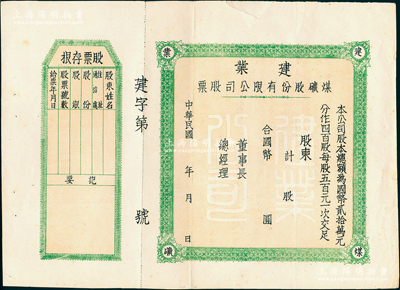 建
業
煤
礦
建業
煤礦股份有限公司股票
本公司股本總額為國幣貳拾萬元
分作四百股每股五百元一次交足
股東
計 股
合國幣 圓
董事長
總經理
中華民國 年 月 日
建字第 號
股票存根
股東姓名
股份
股銀
股票號數
給票年月日